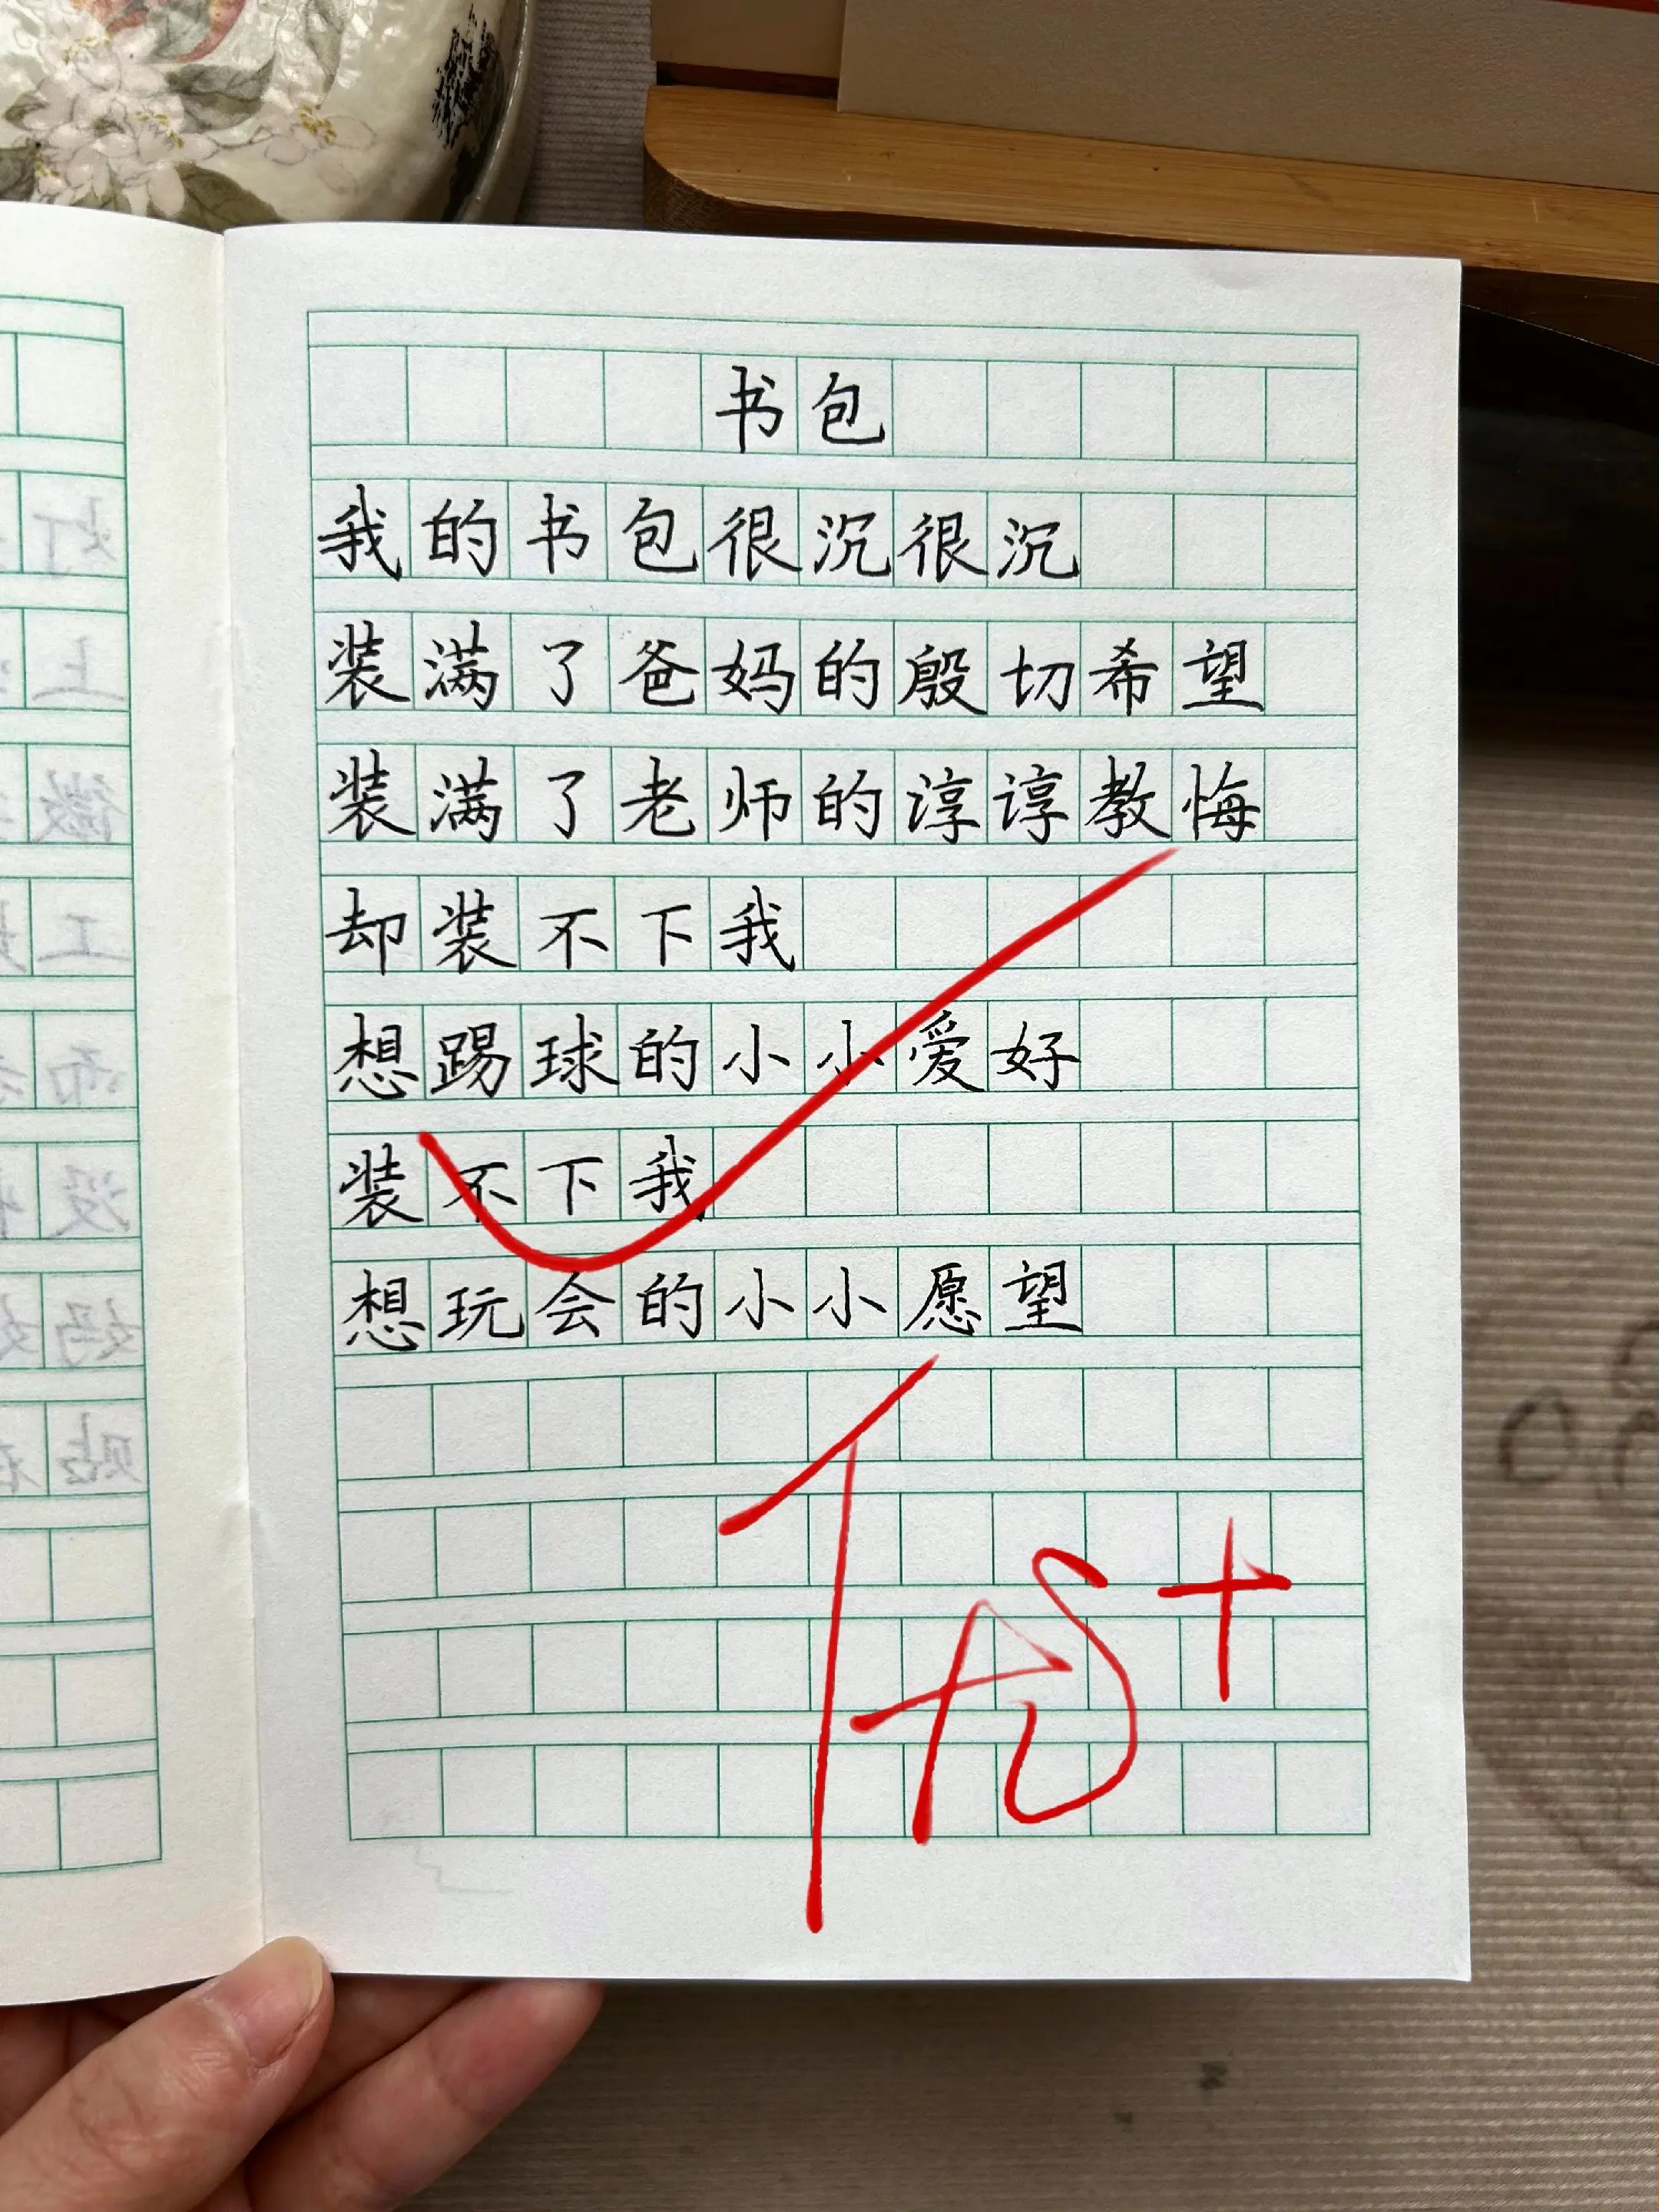 书包
我的书包很沉很沉
装满了爸妈的殷切希望
装满了老师的谆谆教悔
却装不下我
想踢球的小小爱好
装不下我
想玩会的小小愿望
优+